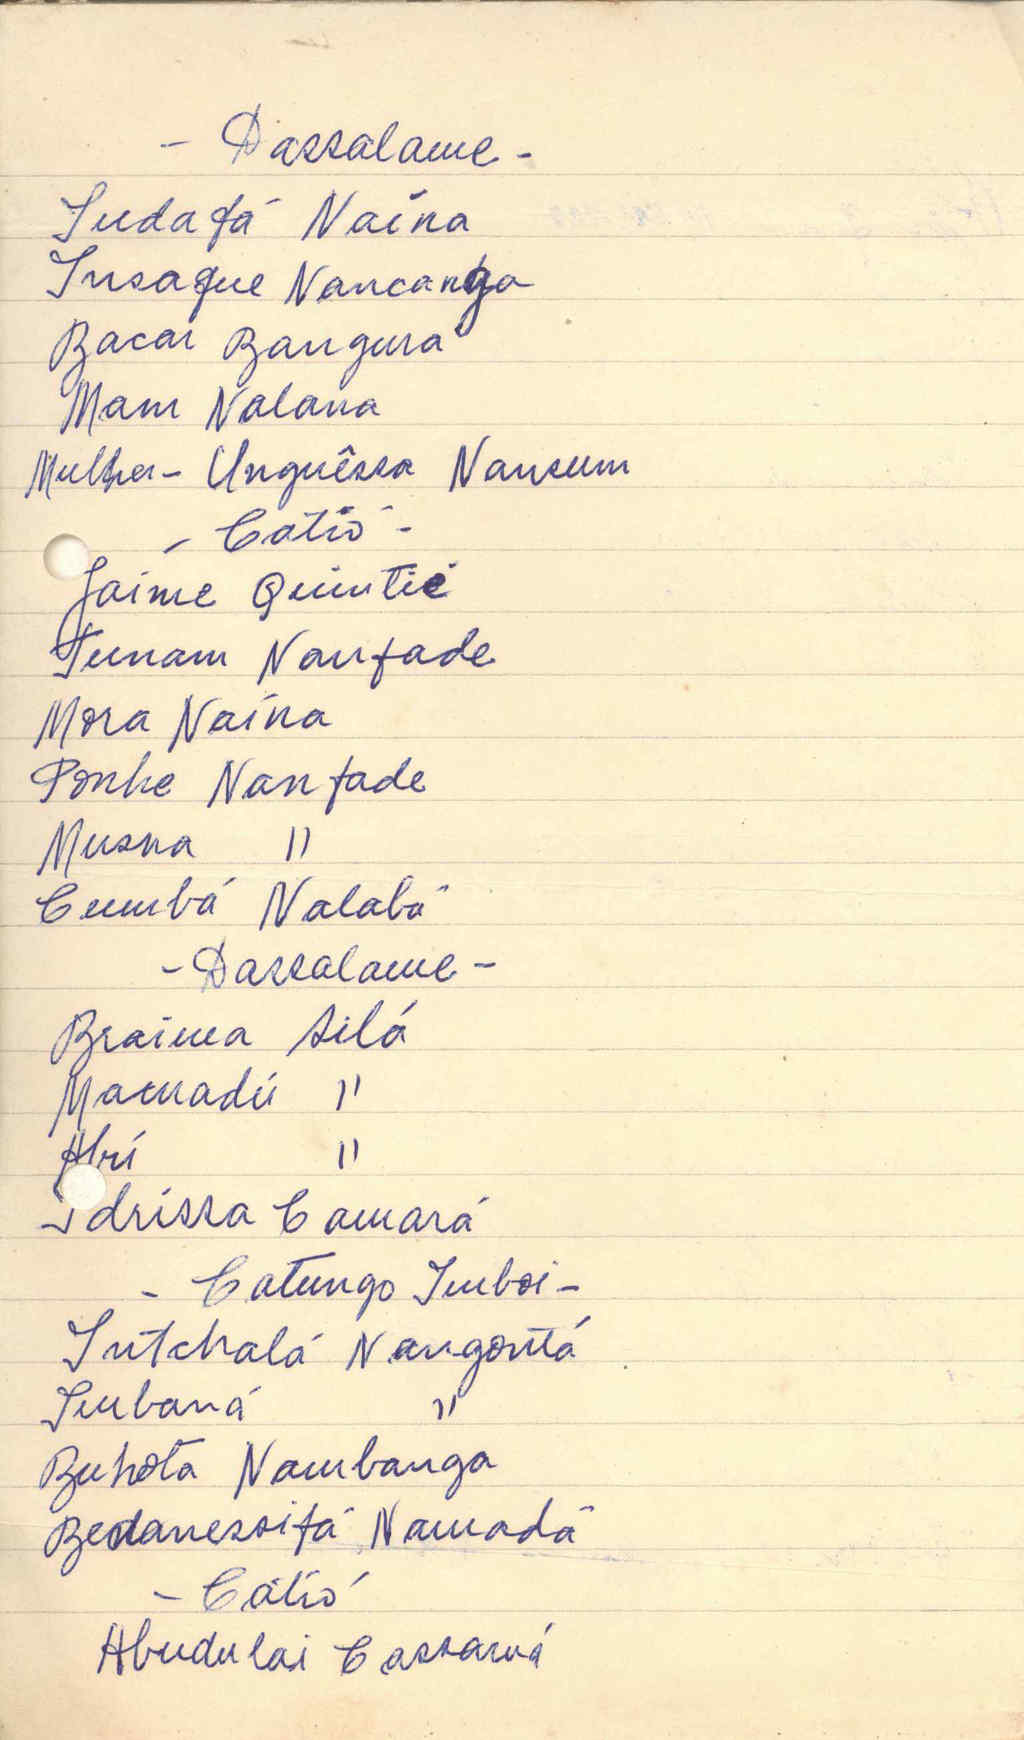 - Dassalame -
Iudafá Naína
Insaque Nancanga
Bacar Bangura
Mam Nalana
Mulher - Unguêssa Nansum
- Catió -
Jaime Quintié
Tunam Nanfade
Mora Naína
Ponhe Nanfade
Musna "
Cumbá Nalabá
- Dassalame -
Braima Silá
Mamadú "
Abrí "
Idrissa Camará
- Catungo Imboi -
Intchalá Nangontá
Imbaná "
Buhota Nambanga
Bedanessifá Namadá
- Catió
Abudulai Cassamá